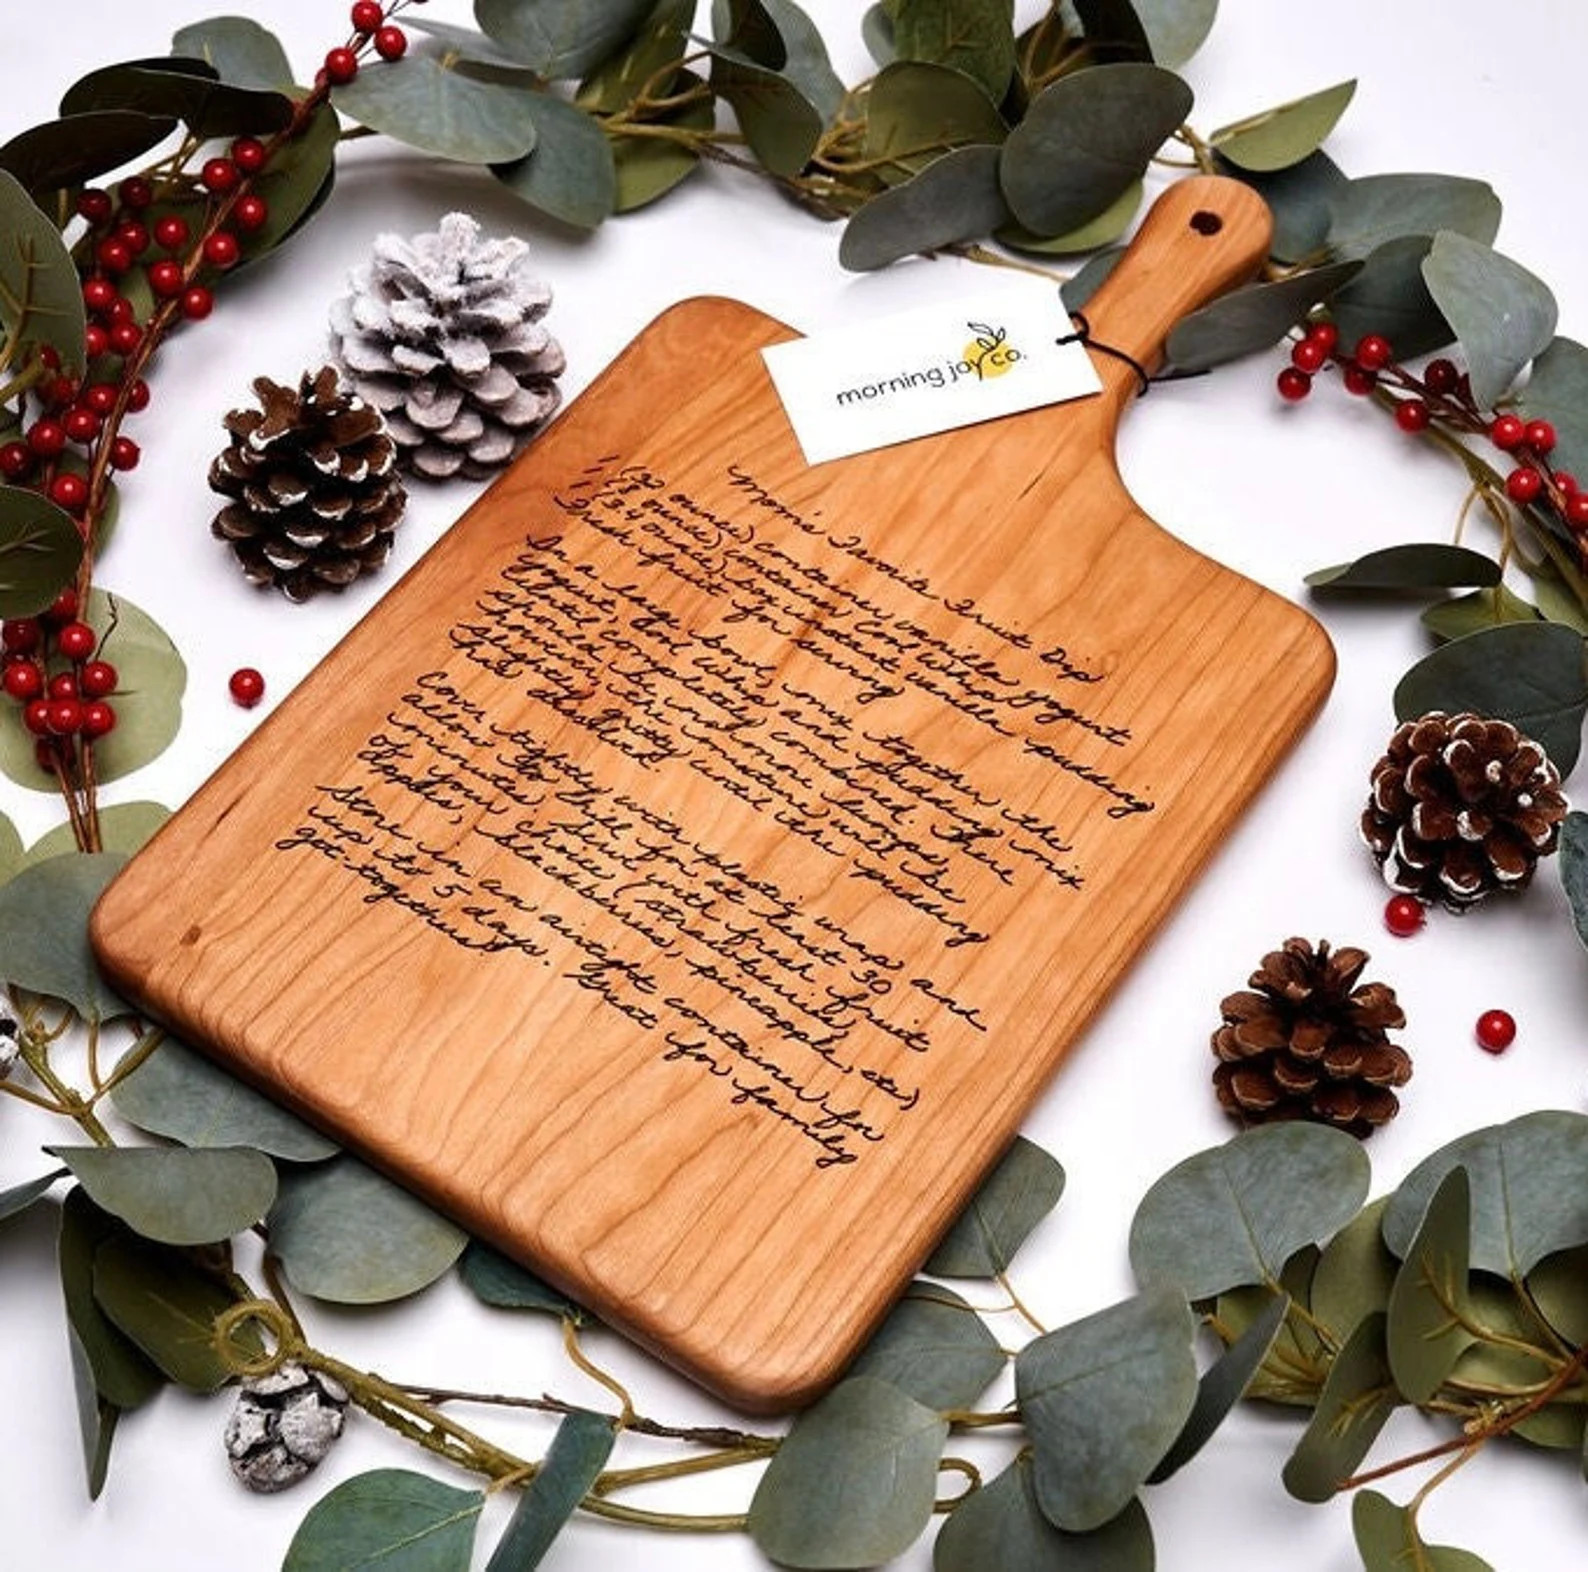 morning joy co.
Mom's Favorite Fruit Dip
1 (32 ounce) container vanilla yogurt
1 (8 ounce) container Cool Whip
1 (3.4 ounce) box instant vanilla pudding
Fresh fruit for serving
In a large bowl, mix together the
yogurt, Cool Whip and pudding mix
until completely combined. There
should be no more lumps,
however, the mixture will be
slightly gritty until the pudding
has dissolved.
Cover tightly with plastic wrap and
allow to chill for at least 30
minutes. Serve with fresh fruit
of your choice (strawberries,
apples, blackberries, pineapple, etc)
Store in an airtight container for
up to 5 days. Great for family
get-togethers!!